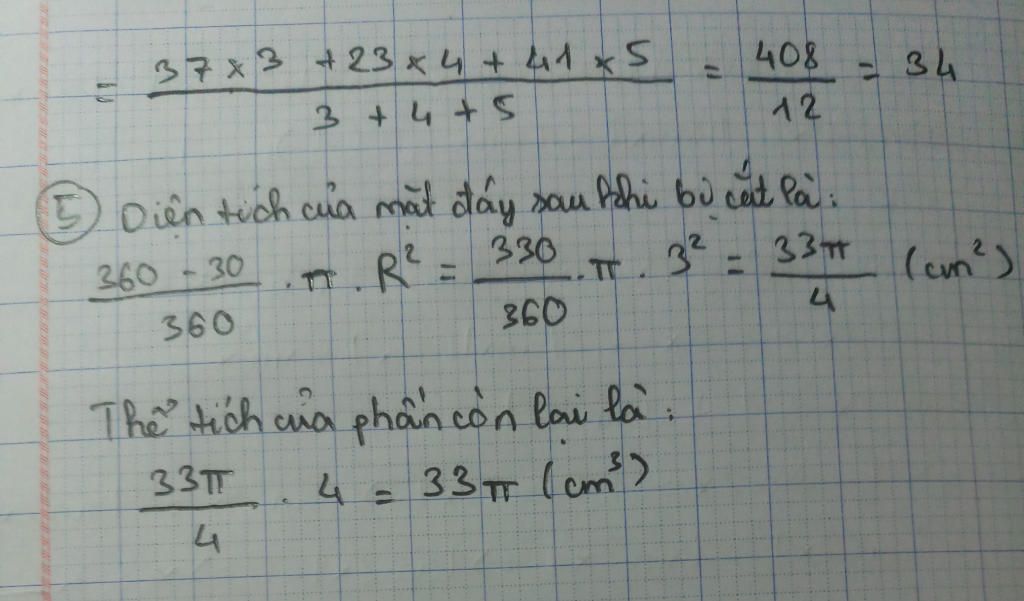 = (37 × 3 + 23 × 4 + 41 × 5) / (3 + 4 + 5) = 408 / 12 = 34
(5) Diện tích của mặt đáy sau khi bị cắt là:
(360 - 30) / 360 . π . R² = 330 / 360 . π . 3² = 33π / 4 (cm²)
Thể tích của phần còn lại là:
33π / 4 . 4 = 33π (cm³)